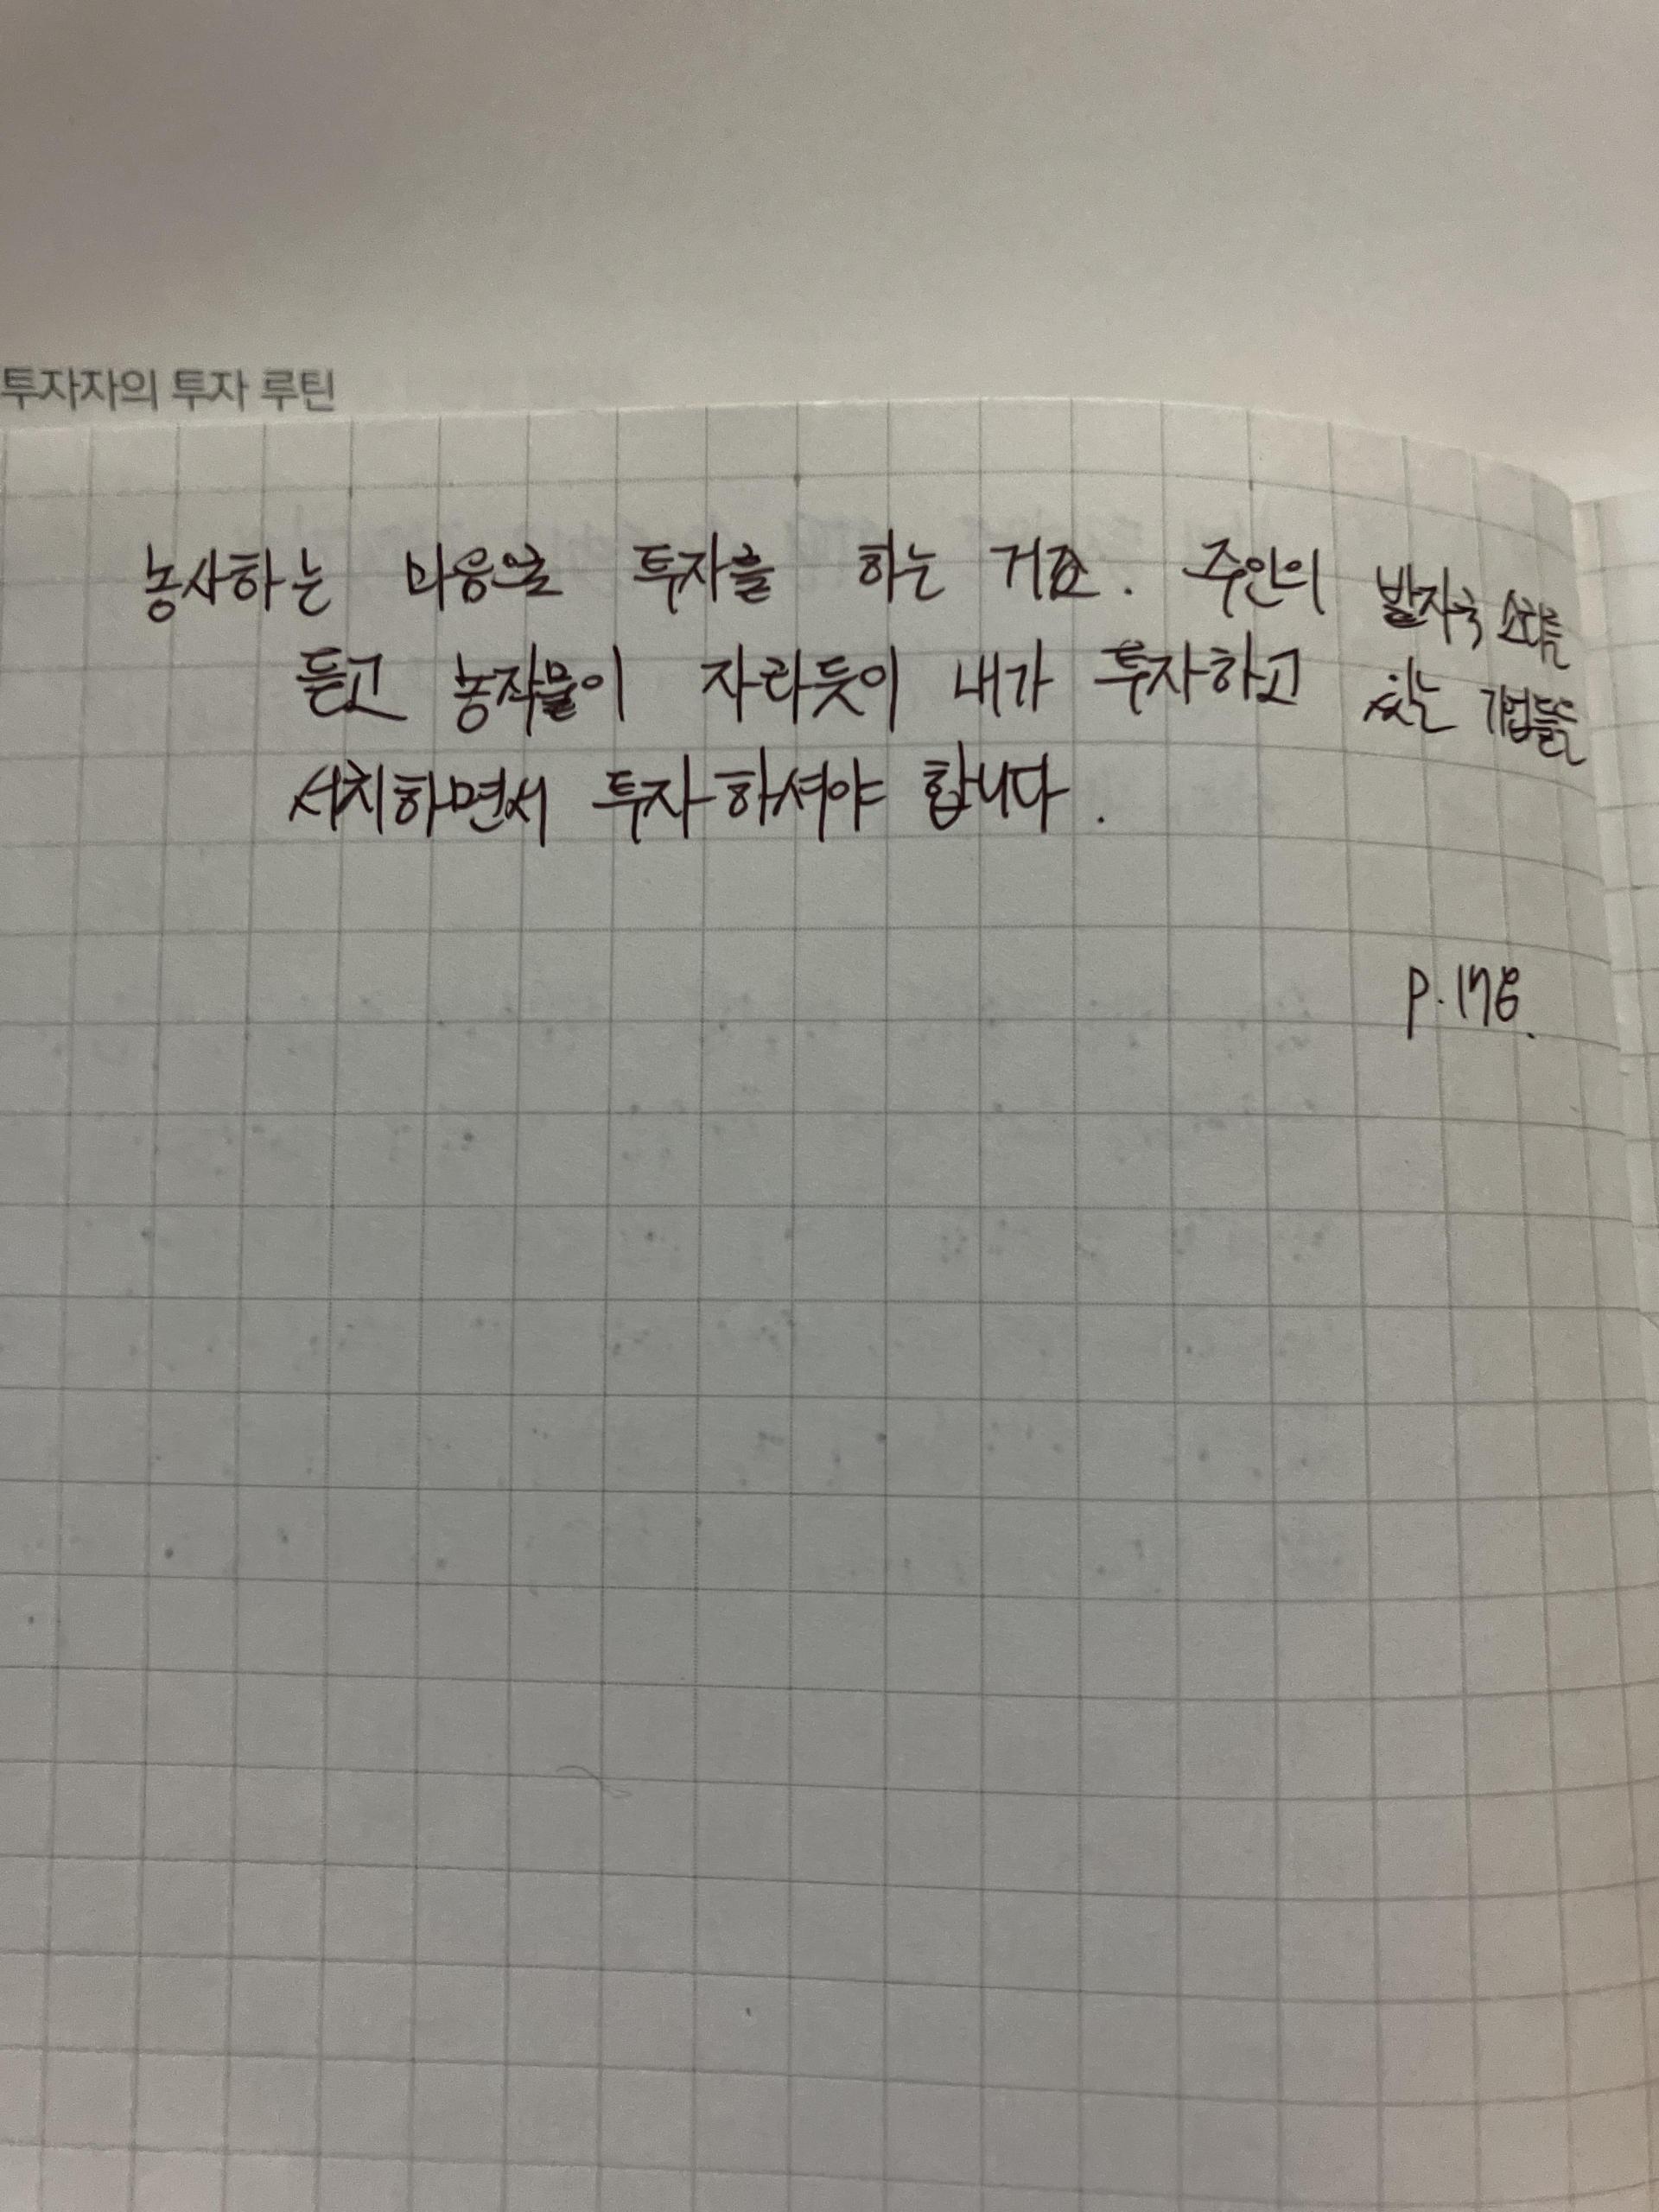 투자자의 투자 루틴
농사하는 마음으로 투자를 하는 거죠. 주인의 발자국 소리를
듣고 농작물이 자라듯이 내가 투자하고 있는 기업들을
서치하면서 투자하셔야 합니다.
p.178.